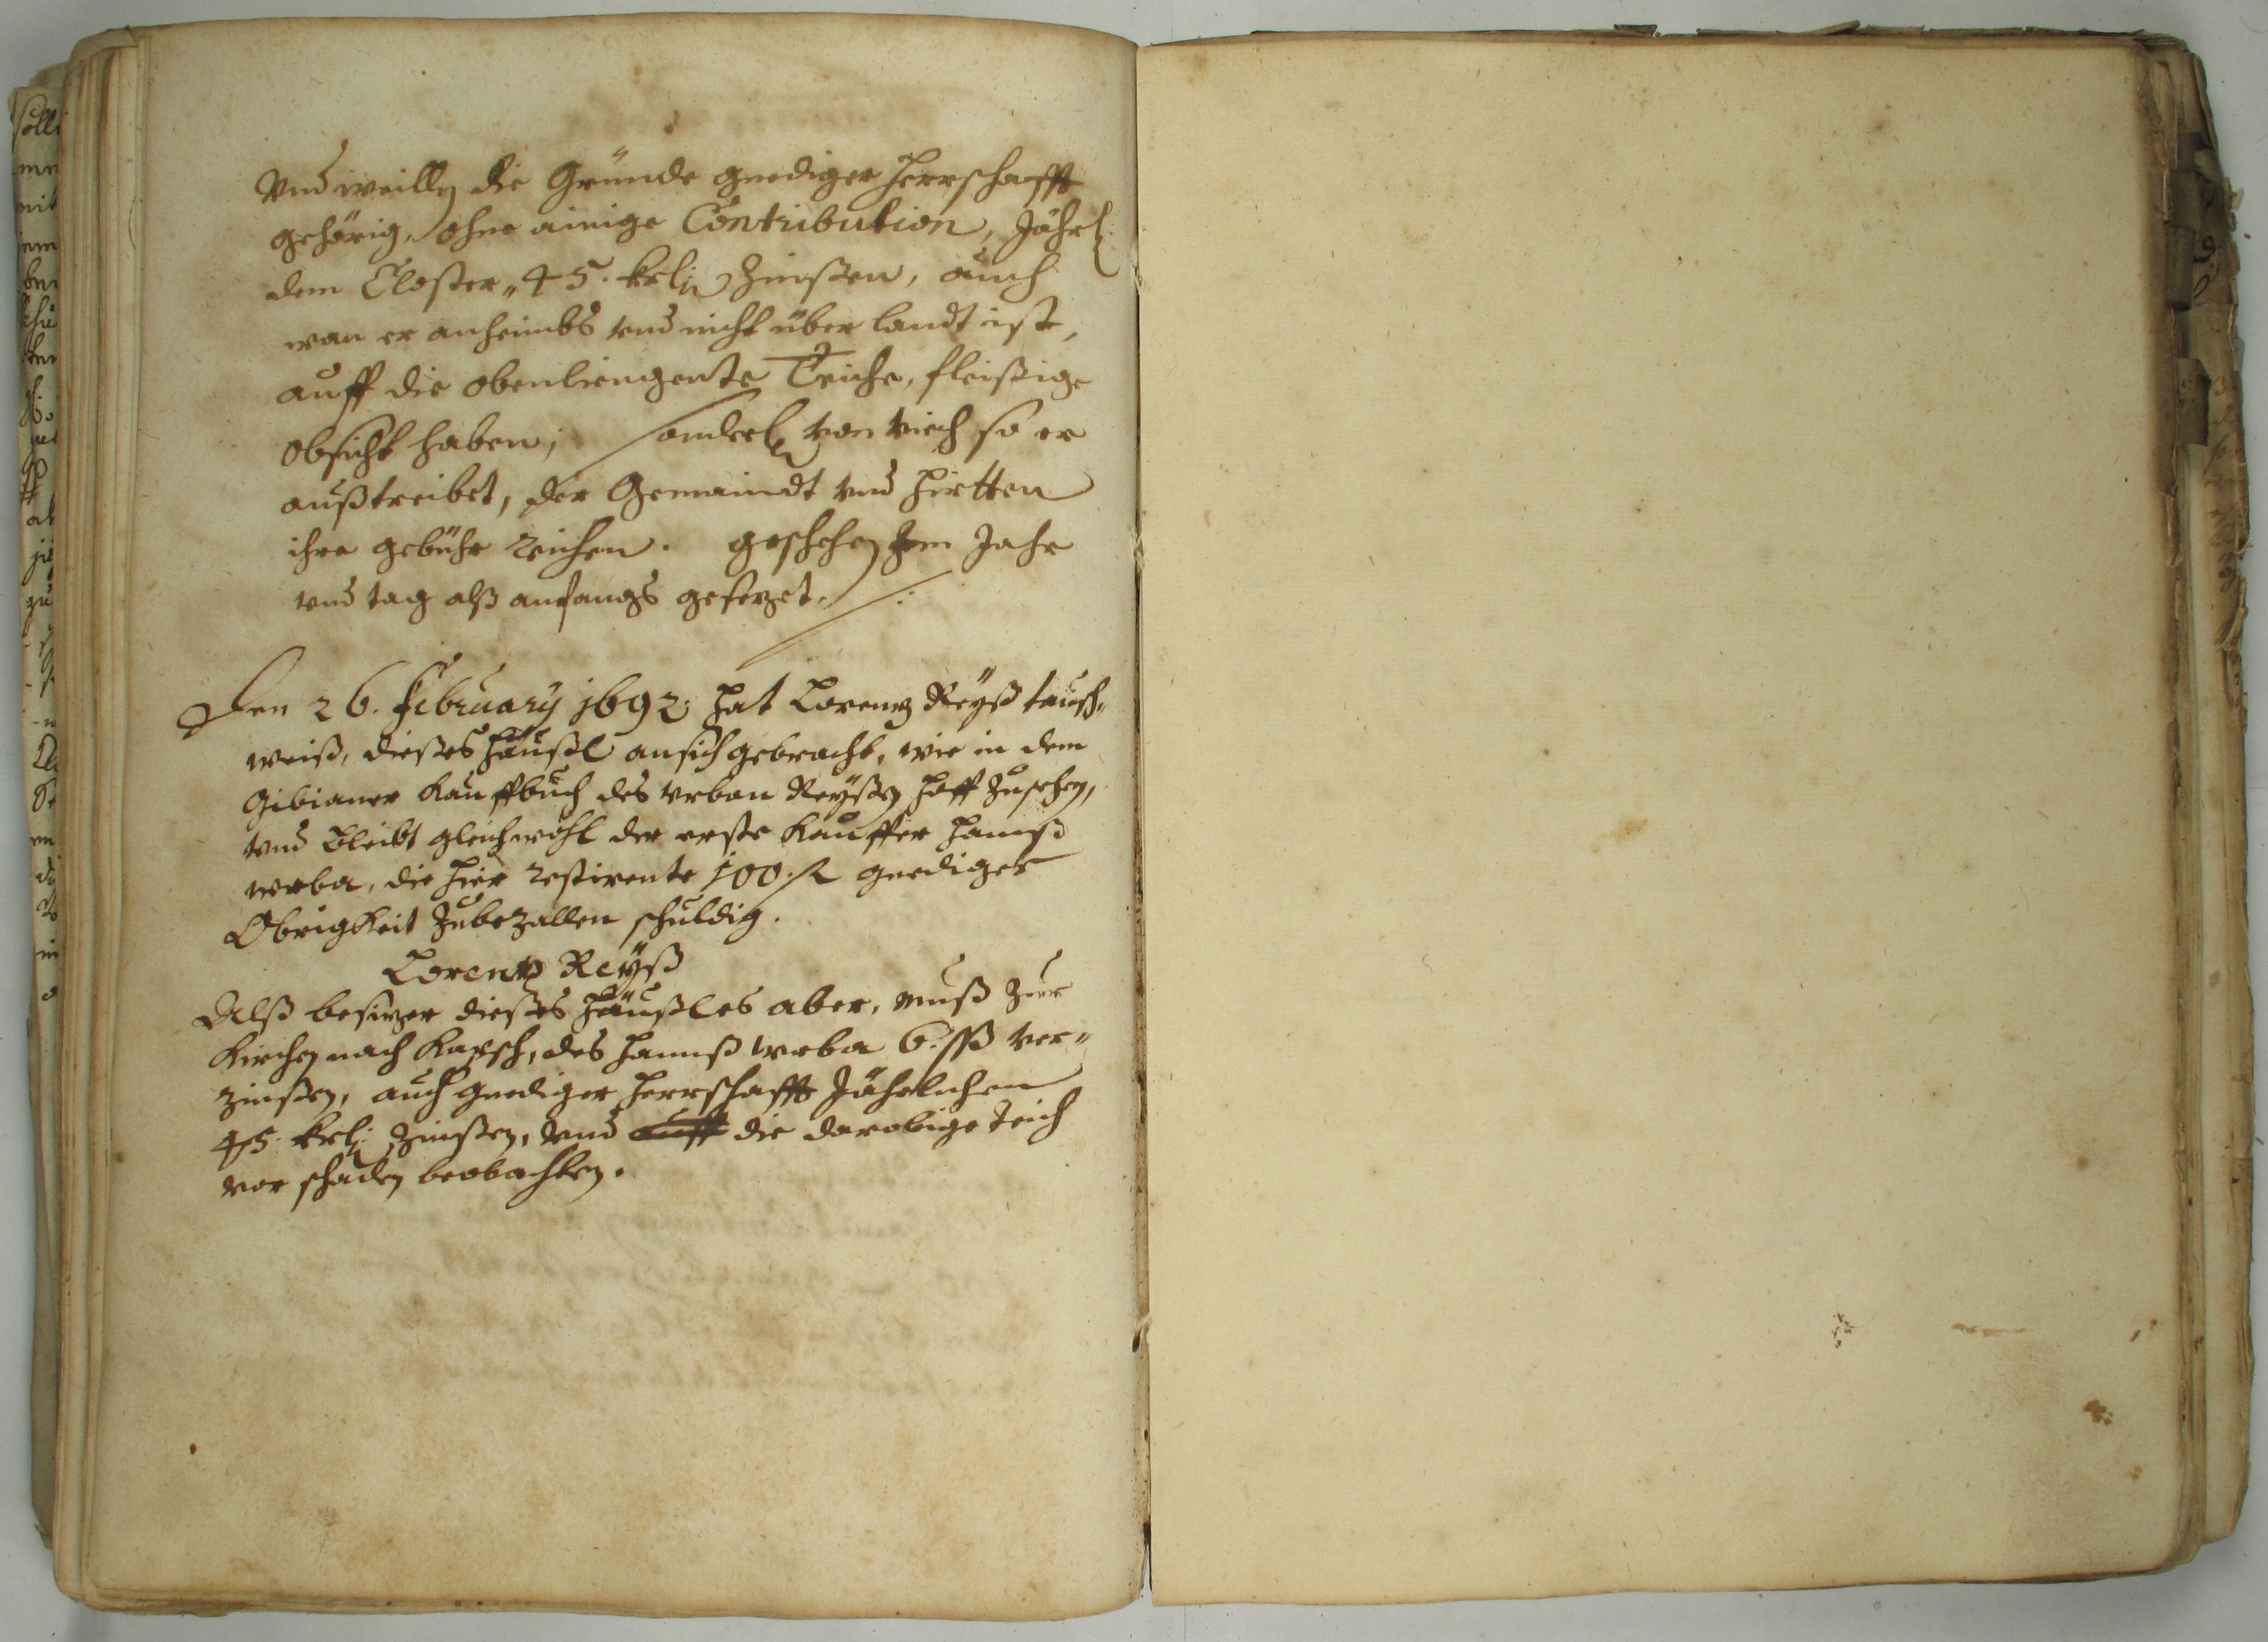 Vnd weillen die Gründe gnediger Herrschafft
gehörig, ohne ainige Contribution, Jährl:
dem Closter, 45. krl: Zinßen, auch
wan er anheimbs vnd nicht über landt ist,
auff die obenliengente Teiche, fleißige
obsicht haben; sonderl: von viech so er
außtreibet, der Gemaindt vnd Hirtten
ihre gebühr reichen. geschehen Im Jahr
vnd tag alß anfangs gesezet.
Den 26. February 1692 hat Lorentz Reyß tausch-
weiß, dießes Häußl an sich gebracht, wie in dem
Gibianer Kauffbuch des Vrban Reyßen Hoff zusehen,
vnd Bleibt gleichwohl der erste Kauffer Hannß
Wrba, die hier restirente 100. fl gnediger
Obrigkeit zubezallen schuldig.
Lorentz Reyß
Alß besizer dießes Häußles aber, muß zur
Kirchen nach Kapsch, des Hannß Wrba 6. ßß ver-
zinßen, auch gnediger Herrschafft Jährlichen
45. krl: Zinßen, Vnd auff die darobige teich
vor schaden beobachten.